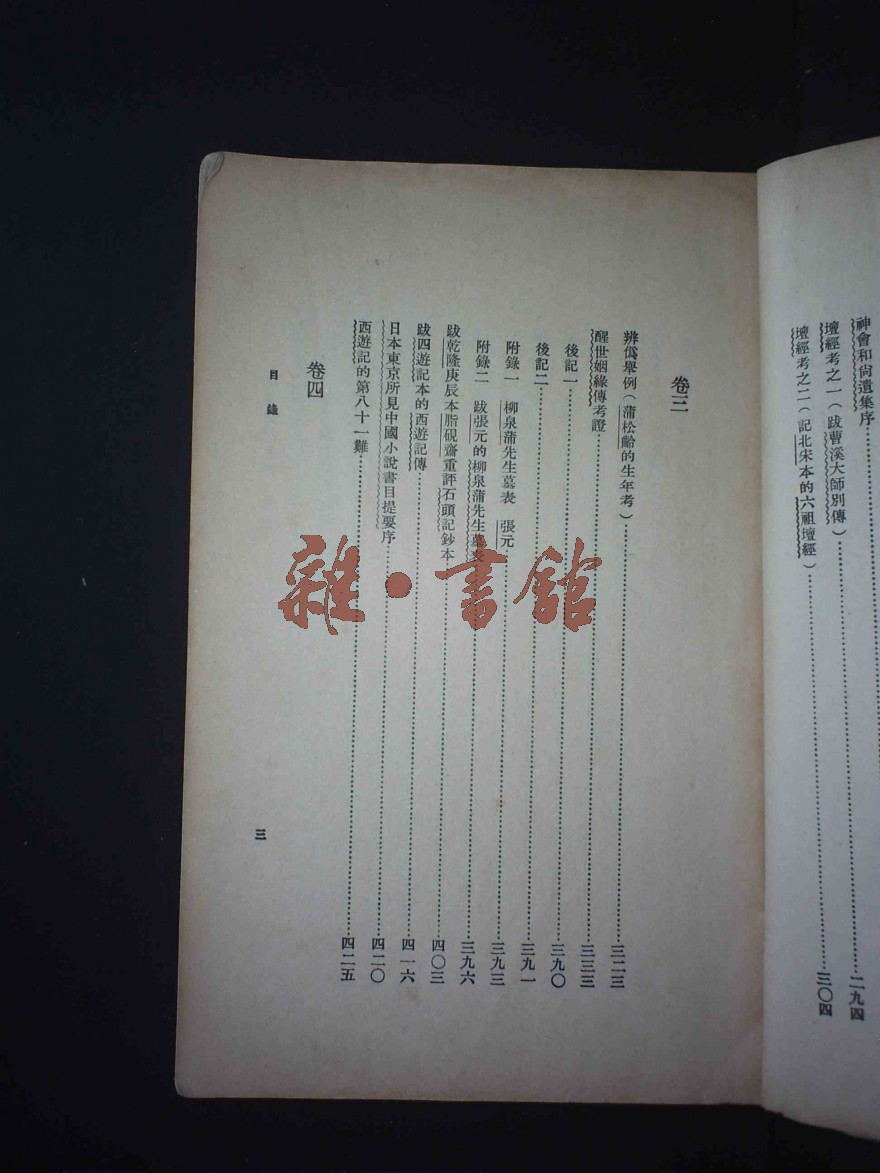 神會和尚遺集序
壇經考之一（跋曹溪大師別傳）……二九四
壇經考之二（記北宋本的六祖壇經）……三〇四
卷三
辨偽舉例（蒲松齡的生年考）……三二三
醒世姻緣傳考證……三三三
後記一……三九〇
後記二……三九一
附錄一　柳泉蒲先生墓表　張元……三九三
附錄二　跋張元的柳泉蒲先生墓表……三九六
跋乾隆庚辰本脂硯齋重評石頭記鈔本……四〇三
跋四遊記本的西遊記傳……四一六
日本東京所見中國小說書目提要序……四二〇
西遊記的第八十一難……四二五
卷四
目錄
三
雜·書館